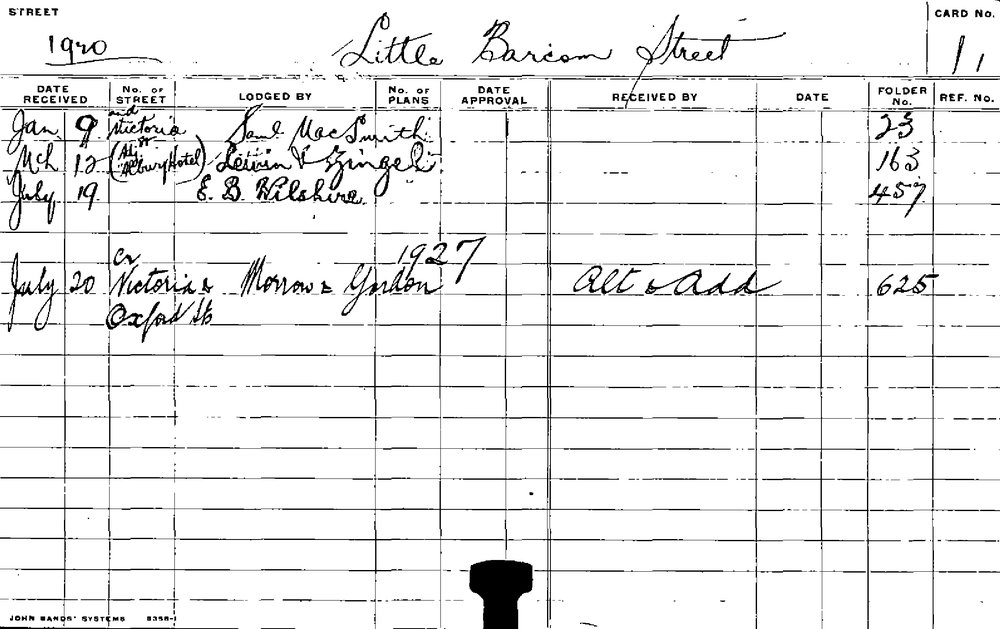 STREET
CARD No.
1920 Little Barcom Street 1
DATE RECEIVED No. OF STREET LODGED BY No. OF PLANS DATE APPROVAL RECEIVED BY DATE FOLDER No. REF. No.
and
Jan 9 Victoria Saml MacSmith 23
St
Mch 12 (Adj Albury Hotel) 163
July 19 E. B. Wilshire 457
1927
Cr
July 20 Victoria & Morrow & Gordon Alt & Add 625
Oxford Sts
JOHN SANDS' SYSTEMS 8358-1